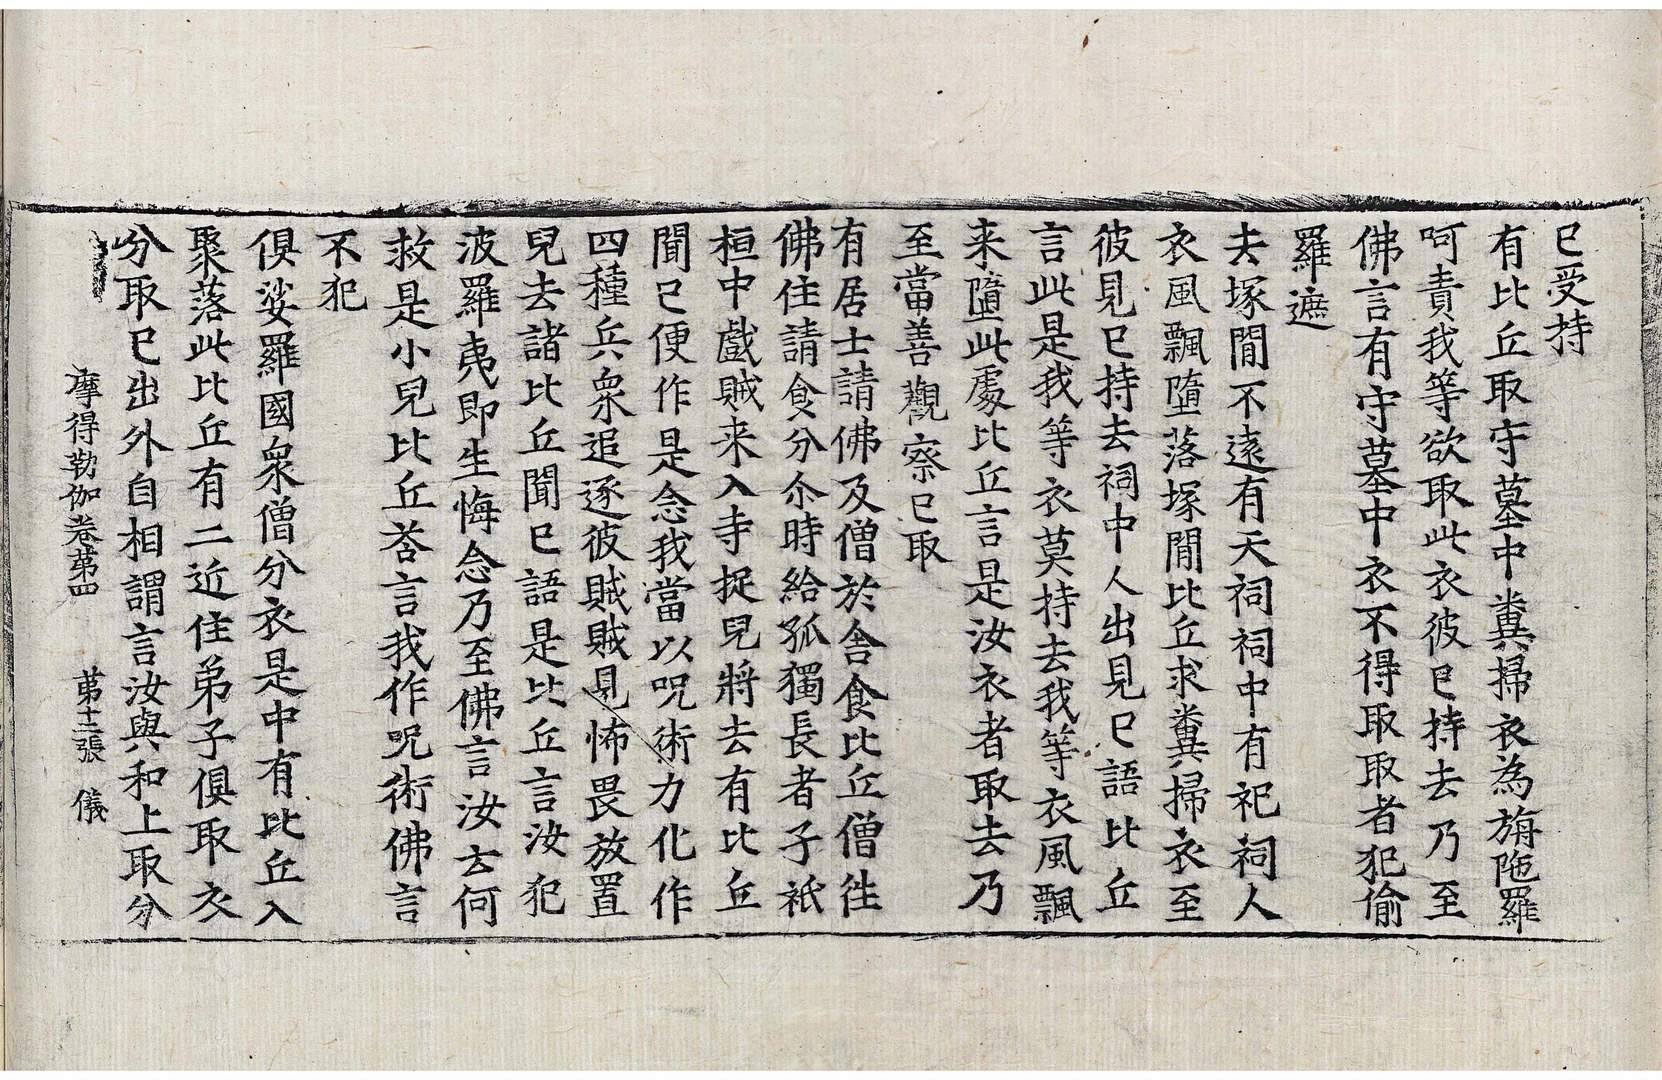 已受持
有比丘取守墓中糞掃衣為旃陁羅
呵責我等欲取此衣彼已持去乃至
佛言有守墓中衣不得取取者犯偷
羅遮
去塚間不遠有天祠祠中有祀祠人
衣風飄墮落塚間比丘求糞掃衣至
彼見已持去祠中人出見已語比丘
言此是我等衣莫持去我等衣風飄
来墮此處比丘言是汝衣者取去乃
至當善觀察已取
有居士請佛及僧於舍食比丘僧徃
佛住請食分尒時給孤獨長者子祇
桓中戲賊来入寺捉兒將去有比丘
聞已便作是念我當以呪術力化作
四種兵衆追逐彼賊賊見怖畏放置
兒去諸比丘聞已語是比丘言汝犯
波羅夷即生悔念乃至佛言汝云何
救是小兒比丘荅言我作呪術佛言
不犯
俱娑羅國衆僧分衣是中有比丘入
聚落此比丘有二近住弟子俱取衣
分取已出外自相謂言汝與和上取分
摩得勒伽卷第四 第十二張 儀